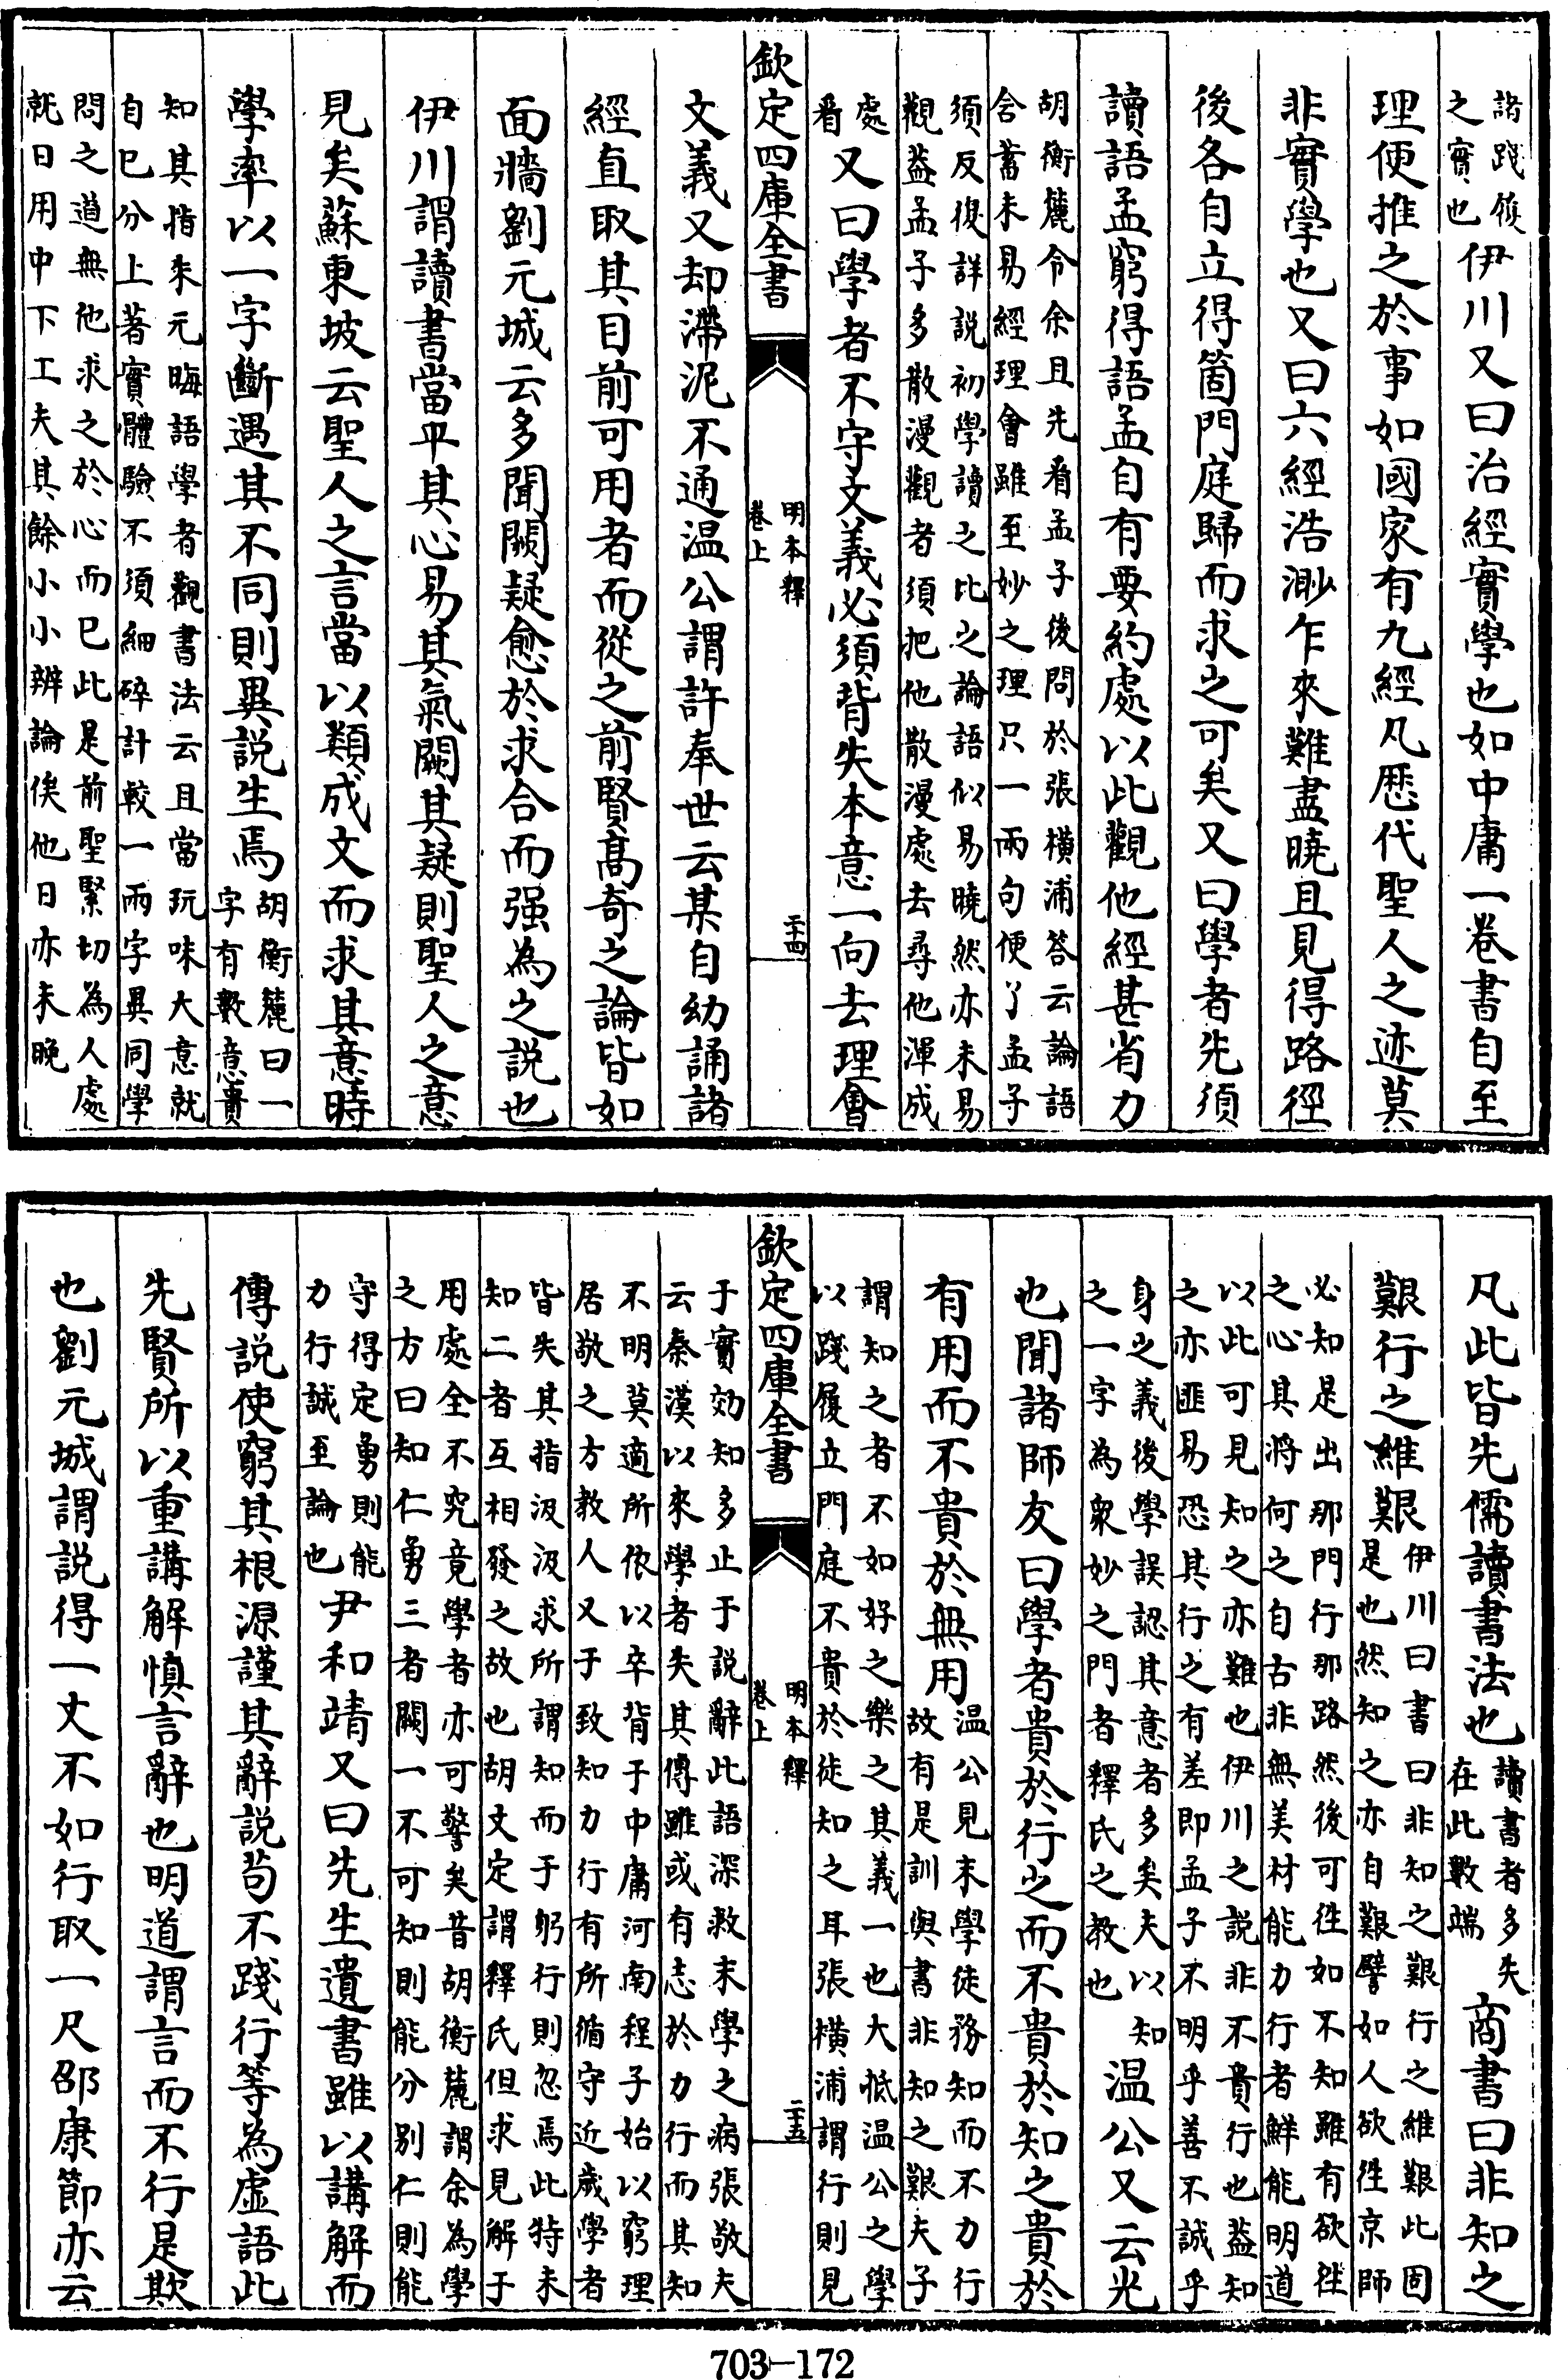 諸踐履之實也伊川又曰治經實學也如中庸一卷書自至
理便推之於事如國家有九經凡歷代聖人之迹莫
非實學也又曰六經浩渺乍來難盡曉且見得路徑
後各自立得箇門庭歸而求之可矣又曰學者先須
讀語孟窮得語孟自有要約處以此觀他經甚省力
胡衡麓令余且先看孟子後問於張橫浦答云論語
含蓄未易經理會雖至妙之理只一兩句便了孟子
須反復詳説初學讀之比之論語似易曉然亦未易
觀蓋孟子多散漫觀者須把他散漫處去尋他渾成
處看又曰學者不守文義必須背失本意一向去理會
欽定四庫全書
明本釋
卷上
二十四
文義又却滯泥不通温公謂許奉世云某自幼誦諸
經直取其目前可用者而從之前賢高奇之論皆如
面牆劉元城云多聞闕疑愈於求合而强為之説也
伊川謂讀書當平其心易其氣闕其疑則聖人之意
見矣蘇東坡云聖人之言當以類成文而求其意時
學率以一字斷遇其不同則異説生焉胡衡麓曰一字有數意實
知其指朱元晦語學者觀書法云且當玩味大意就
自己分上著實體驗不須細碎計較一兩字異同學
問之道無他求之於心而已此是前聖緊切為人處
就日用中下工夫其餘小小辨論俟他日亦未晚
凡此皆先儒讀書法也讀書者多失在此數端商書曰非知之
艱行之維艱伊川曰書曰非知之艱行之維艱此固是也然知之亦自艱譬如人欲徃京師
必知是出那門行那路然後可徃如不知雖有欲徃
之心其將何之自古非無美材能力行者鮮能明道
以此可見知之亦難也伊川之説非不貴行也蓋知
之亦匪易恐其行之有差即孟子不明乎善不誠乎
身之義後學誤認其意者多矣夫以知之一字為衆妙之門者釋氏之教也温公又云光
也聞諸師友曰學者貴於行之而不貴於知之貴於
有用而不貴於無用温公見末學徒務知而不力行故有是訓與書非知之艱夫子
謂知之者不如好之樂之其義一也大抵温公之學
以踐履立門庭不貴於徒知之耳張橫浦謂行則見
欽定四庫全書
明本釋
卷上
二十五
于實効知多止于説辭此語深救末學之病張敬夫
云秦漢以來學者失其傳雖或有志於力行而其知
不明莫適所依以卒背于中庸河南程子始以窮理
居敬之方教人又于致知力行有所循守近嵗學者
皆失其指汲汲求所謂知而于躬行則忽焉此特未
知二者互相發之故也胡文定謂釋氏但求見解于
用處全不究竟學者亦可警矣昔胡衡麓謂余為學
之方曰知仁勇三者闕一不可知則能分别仁則能
守得定勇則能力行誠至論也尹和靖又曰先生遺書雖以講解而
傳説使窮其根源謹其辭説苟不踐行等為虛語此
先賢所以重講解慎言辭也明道謂言而不行是欺
也劉元城謂説得一丈不如行取一尺邵康節亦云
703-172